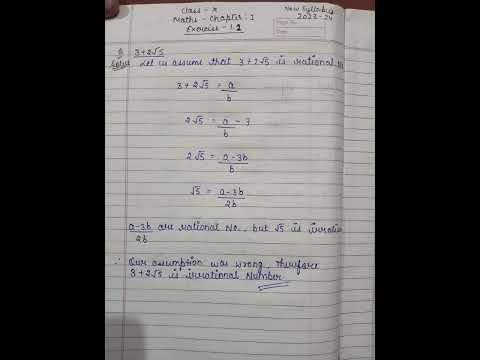 Class - X
Maths - Chapter : 1
Exercise - 1.2
New Syllabus
2023-24
Page No.
Q. 3+2√5
Solun Let us assume that 3+2√5 is rational
3 + 2√5 = a/b
2√5 = a/b - 3
2√5 = a-3b/b
√5 = a-3b/2b
a-3b/2b are rational No., but √5 is irration
∴ Our assumption was wrong, therefore
3+2√5 is irrational Number